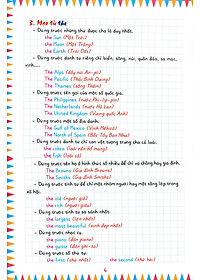 3. Mạo từ the
- Dùng trước những thứ được cho là duy nhất.
the Sun (Mặt Trời)
the Moon (Mặt Trăng)
the Earth (Trái Đất)
- Dùng trước danh từ riêng chỉ biển, sông, núi, quần đảo, sa mạc,
vịnh,...
The Alps (dãy núi An-pơ)
the Pacific (Thái Bình Dương)
The Thames (sông Thêm)
- Dùng trước tên gọi của một số quốc gia.
The Philippines (nước Phi-líp-pin)
the Netherlands (nước Hà Lan)
The United Kingdom (Vương quốc Anh)
- Dùng trước một số địa danh.
the Gulf of Mexico (Vịnh Mêhicô)
The North of Spain (Bắc Tây Ban Nha)
- Dùng trước danh từ chỉ con vật tượng trưng cho cả loài:
the cobra (loài rắn hổ mang)
the fish (loài cá)
- Dùng trước tên họ ở hình thức số nhiều để chỉ vợ chồng hay gia đình.
The Browns (Gia đình Browns)
The Smiths (Gia đình Smiths)
- Dùng trước tính từ để chỉ một nhóm người hay một tầng lớp trong
xã hội.
the old (người già)
the rich (người giàu)
- Dùng trước tính từ so sánh nhất.
the largest (lớn nhất)
the most beautiful (xinh đẹp nhất)
- Dùng trước nhạc cụ.
the piano (đàn piano)
the guitar (đàn guitar)
- Dùng trước số thứ tự.
the first (thứ nhất) the second (thứ hai)
6